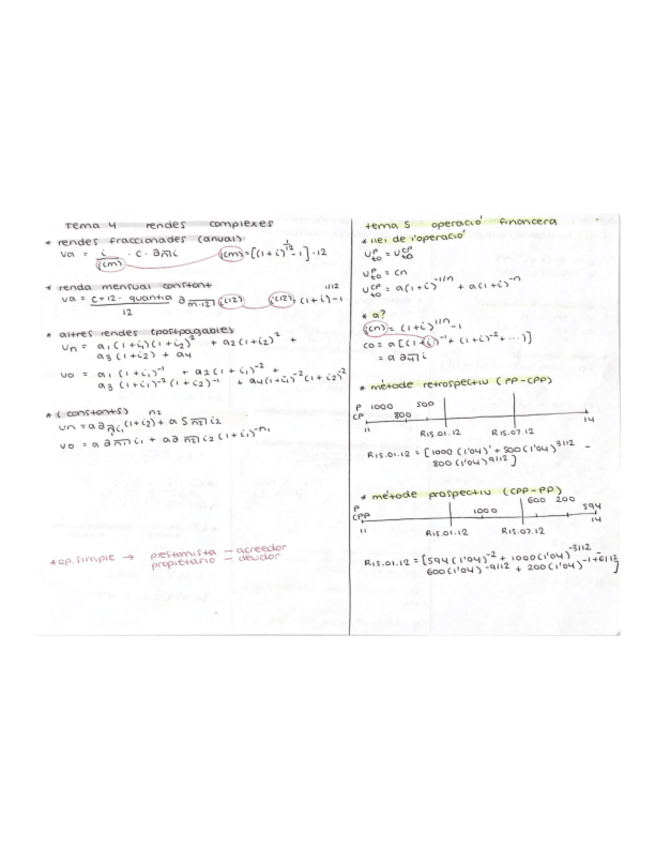 Tema 4 rendes complexes
* rendes fraccionades (anuals)
Va = i/j(m) · c · a n̅ i j(m) = [(1+i)^1/12 - 1] · 12
* renda mensual constant
Va = c+12 · quantia / 12 a m·12 i(12) i(12) = (1+i)^1/12 - 1
* altres rendes (postpagable)
Un = a1 (1+i1)(1+i2)^2 + a2(1+i2)^2 +
a3 (1+i2) + a4
V0 = a1 (1+i1)^-1 + a2(1+i1)^-2 +
a3 (1+i1)^-2 (1+i2)^-1 + a4(1+i1)^-2(1+i2)^-2
* (constants)
Un = a a n1 i1 (1+i2)^n2 + a S n2 i2
V0 = a a n1 i1 + a a n2 i2 (1+i1)^-n1
*op.simple → prestamista — acreedor
propietario — deudor
tema 5 operació financera
* llei de l'operació
U^P t0 = U^CP t0
U^P t0 = cn
U^CP t0 = a(1+i)^-1/n + a(1+i)^-n
* a?
i(n) = (1+i)^1/n - 1
c0 = a[(1+i)^-1 + (1+i)^-2 + ...)]
= a a 4 i
* método retrospectiu (PP-CPP)
P 1000 500
CP 800
11 R15.01.12 R15.07.12 14
R15.01.12 = [1000(1'04)^1 + 500(1'04)^3/12 -
800(1'04)^9/12]
* método prospectiu (CPP-PP)
P 600 200
CPP 1000 594
11 R15.01.12 R15.07.12 14
R15.01.12 = [594(1'04)^-2 + 1000(1'04)^-3/12 -
600(1'04)^-9/12 + 200(1'04)^-1+6/12]